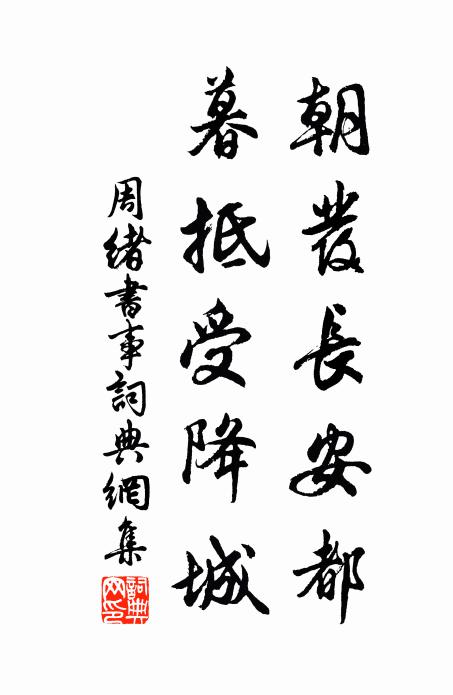 朝發長安都
暮抵受降城
周緒書事詞典網集
詞典網印